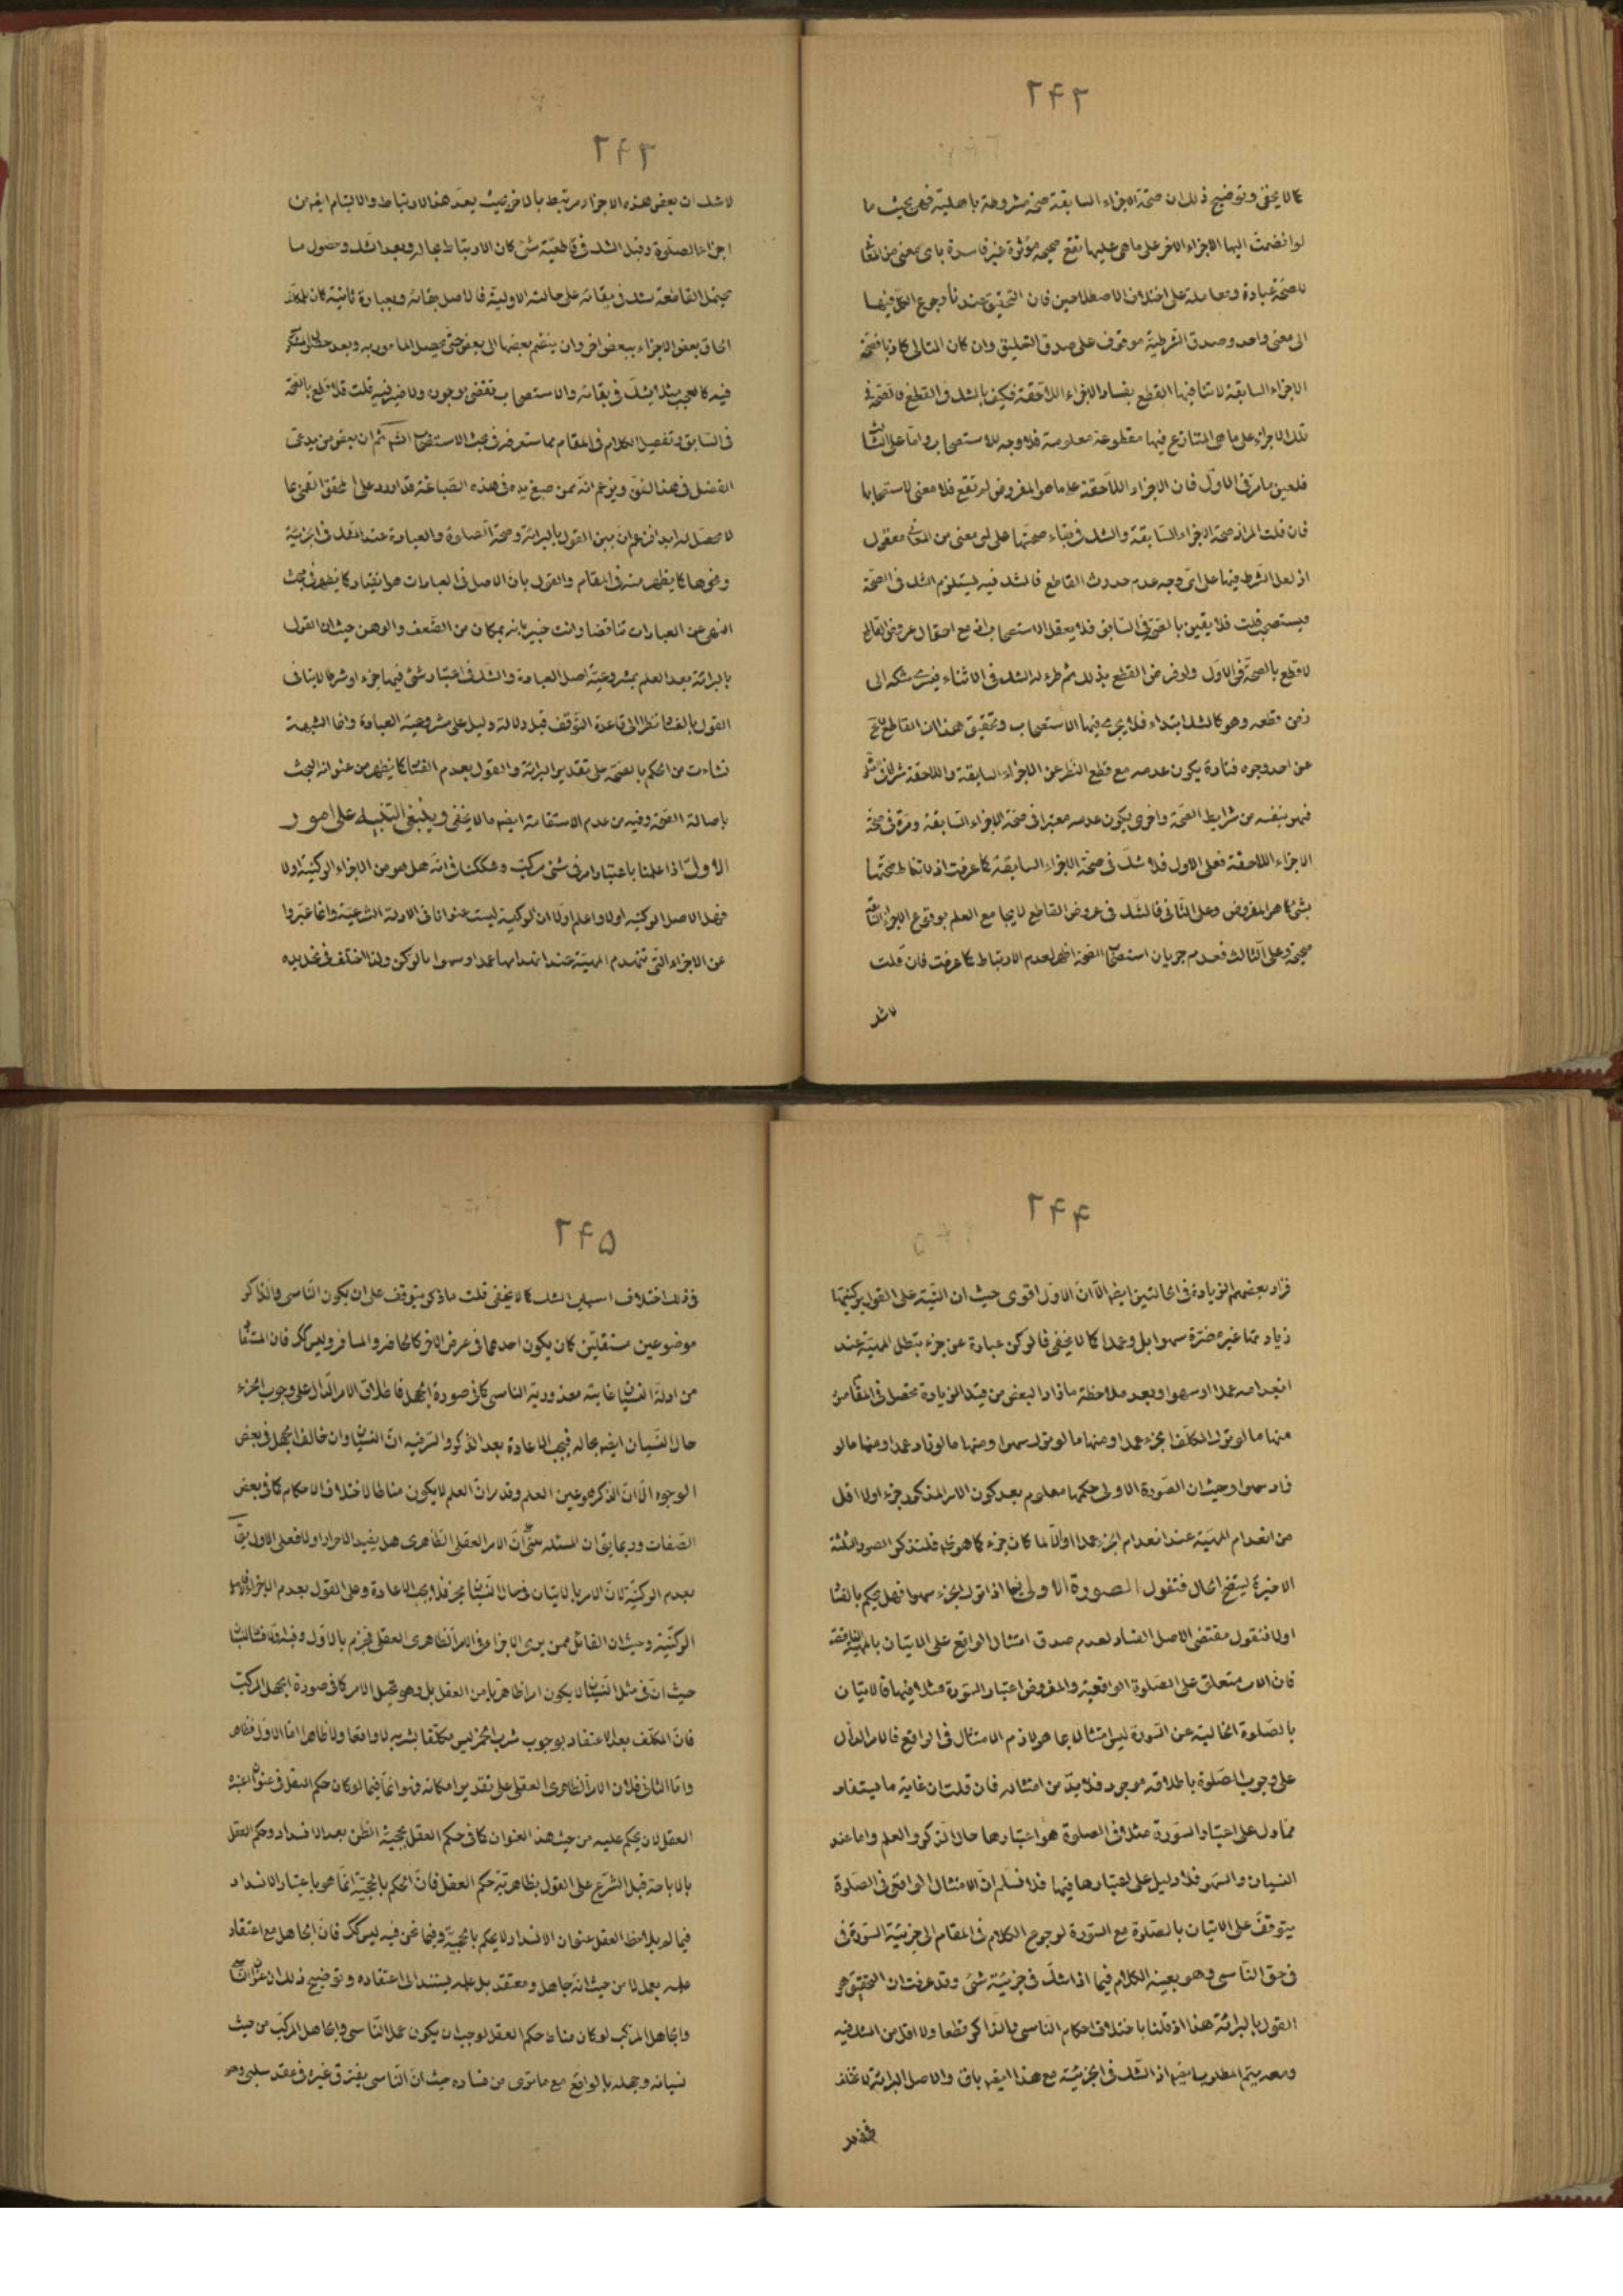 ۲۴۲
كما لا يخفى وتوضيح ذلك ان صحة الاجزاء السابقة صحة مشروطة باهلية فهى بحيث ما
لو انضمت اليها الاجزاء الاخر على ما هى عليها تقع صحيحة مؤثرة غير فاسدة باى معنى من المعانى
للصحة عبادة ومعاملة على اختلاف الاصطلاحين فان التحقيق عندنا رجوع الكل فيها
الى معنى واحد وصدق الشرطية موقوف على صدق التعليق وان كان التالى كاذبا فصحة
الاجزاء السابقة لا تنافيها القطع بفساد الاجزاء اللاحقة فكيف بالشك فالقطع فالصحة فى
تلك الاجزاء على ما هى المتنازع فيها مقطوعة معلومة فلا وجه للاستصحاب واما على الثانى
فلعين ما مر فى الاول فان الاجزاء اللاحقة على ما هو المفروض لم تقع فلا معنى لاستصحابها
فان قلت المراد صحة الاجزاء السابقة والشك فى بقاء صحتها على اى معنى من المعانى معقول
اذ لعل الشرط فيها على اى وجه عدم حدوث القاطع فالشك فيه يستلزم الشك فى الصحة
فيستصحب قلت فلا يقين بالصحة فى السابق فلا يعقل الاستصحاب اذ مع احتمال عروض القاطع
لا قطع بالصحة فى الاول ولو فرض القطع بذلك ثم طرء له الشك فى الاثناء فيسرى شكه الى
زمن قطعه وهو كالشك ابتداء فلا يجرى فيها الاستصحاب وتحقيق هذا ان القاطع لا يخ
عن احد وجوه فتارة يكون عدمه مع قطع النظر عن الاجزاء السابقة واللاحقة شرطا فى الاثر
فهو بنفسه من شرايط الصحة واخرى يكون عدمه معتبرا فى صحة الاجزاء السابقة ومرة فى صحة
الاجزاء اللاحقة فعلى الاول فلا شك فى صحة الاجزاء السابقة كما عرفت اذ لا تناط صحتها
بشئ كما هو المفروض وعلى الثانى فالشك فى عروض القاطع لا يجا مع العلم بوقوع الاجزاء السابقة
صحيحة وعلى الثالث فعدم جريان استصحاب الصحة اظهر لعدم الارتباط كما عرفت فان قلت
لا شك
۲۴۳
لا شك ان بعض هذه الاجزاء مرتبط بالاخر بحيث يعد هذا الارتباط والالتيام ايضه من
اجزاء الصلوة وقبل الشك فى قاطعية شئ كان الارتباط بحاله وبعد الشك وحصول ما
يحتمل القاطعة شك فى بقائه على حالته الاولية فالاصل بقائه وبعبارة ثانية كان للمكلف
الحاق بعض الاجزاء ببعض اخر وان ينضم بعضها الى بعض حتى يحصل المامور به وبعد حصول المشكوك
فيه كالعجب مثلا يشك فى بقائه والاستصحاب يقضى بوجوده ولا ضير فيه قلت فلا قطع بالصحة
فى السابق وتفصيل الكلام فى المقام بما ستعرفه فى بحث الاستصحاب انشاء الله ثم ان بعض من يدعى
الفضل فى هذا الفن ويزعم انه ممن صبغ يده فى هذه الصباغة قد اورد على المحقق القمى بما
لا محصل له ابدا فزعم ان بين القول بالبرائة وصحة الصلوة والعبادة عند الشك فى الجزئية
ونحوها كما يظهر منه فى المقام والقول بان الاصل فى العبادات هو الفساد كما يظهر فى بحث
النهى عن العبادات تناقضا وانت خبير بانه بمكان من الضعف والوهن حيث ان القول
بالبرائة بعد العلم بمشروعية اصل العبادة والشك فى اعتبار شئ فيها جزء او شرطا لا ينافى
القول بالفساد نظرا الى قاعدة التوقف قبل دلالة دليل على مشروعية العبادة وانما الشبهة
نشاءت من الحكم بالصحة على تقدير البرائة والقول بعدم الفساد كما يظهر من عنوانه البحث
باصالة الصحة وفيه من عدم الاستقامة ايضه ما لا يخفى وينبغى التنبيه على امور
الاول اذا علمنا باعتبار امر فى شئ مركب وشككنا فى انه هل هو من الاجزاء الركنية او لا
فهل الاصل الركنيه او لا واعلم اولا ان الركنية ليست عنوانا فى الادلة الشرعية وانما عبروا
عن الاجزاء التى تنهدم المهية عند انعدامها عمدا وسهوا بالركن ولذا اختلف فى تحديده
۲۴۴
فزاد بعضهم الزيادة فى الحالتين ايضه الا ان الاول اقوى حيث ان النية على القول بركنيتها
زيادتها غير مضرة سهوا بل وعمدا كما لا يخفى فالركن عبارة عن جزء تبطل المهية عند
انعدامه عمدا او سهوا وبعد ملاحظة ما زاد البعض من قيد الزيادة تحصل فى المقام صور
منها ما لو ترك المكلف الجزء عمدا ومنها ما لو ترك سهوا ومنها ما لو زاد عمدا ومنها ما لو
زاد سهوا وحيث ان الصورة الاولى حكمها معلوم بعد كون الامر المذكور جزء اولا اقل
من انعدام المهية عند انعدام الجزء عمدا والا لما كان جزء كما هو ظ فلنذكر الصور الثلثة
الاخيرة ليتضح الحال فنقول الصورة الاولى فيما اذا ترك الجزء سهوا فهل يحكم بالفساد
اولا فنقول مقتضى الاصل الفساد لعدم صدق امتثال الواقع على الاتيان بالمهية الناقصة
فان الامر متعلق على الصلوة الواقعية والمفروض اعتبار السورة مثلا فيها فالاتيان
بالصلوة الخالية عن السورة ليس امتثالا بما هو لازم الامتثال فى الواقع فالامر الدال
على وجوب الصلوة باطلاقه موجود فلا بد من امتثاله فان قلت ان غاية ما يستفاد
مما دل على اعتبار السورة مثلا فى الصلوة هو اعتبارها حال الذكر والعلم واما عند
النسيان والسهو فلا دليل على اعتبارها فيها فلا نسلم ان الامتثال الواقعى فى الصلوة
يتوقف على الاتيان بالصلوة مع السورة لرجوع الكلام فى المقام الى جزئية السورة فى
فى حق الناسى وهو بعينه الكلام فيما اذا شك فى جزئية شئ وقد عرفت ان التحقيق هو
القول بالبرائة هذا اذ قلنا باختلاف احكام الناسى والذاكر قطعا ولا اقل من الشك فيه
ومعه يتم المطلوب ايضه اذ الشك فى الجزئية مع هذا ايضه باق والاصل البرائة لا تختلف
۲۴۵
فى ذلك اختلاف اسباب الشك كما لا يخفى قلت ما ذكر يتوقف على ان يكون الناسى والذاكر
موضوعين مستقلين كان يكون احدهما فى عرض الاخر كالحاضر والمسافر وليس كك فان المستفاد
من ادلة النسيان غايته معذورية الناسى كما فى صورة الجهل فاطلاق الامر الدال على وجوب الجزء
حال النسيان ايضه بحاله فيجب الاعادة بعد الذكر والسر فيه ان النسيان وان خالف الجهل فى بعض
الوجوه الا ان الذكر هو عين العلم وقد مر ان العلم لا يكون مناطا لاختلاف الاحكام كما فى بعض
الصفات وربما يق ان المسئلة مبنية على ان الامر العقلى الظاهرى هل يفيد الاجزاء اولا فعلى الاول يق
بعدم الركنية لان الامر بالاتيان فى حال النسيان مجز فلا يجب الاعادة وعلى القول بعدم الاجزاء
الركنية وحيث ان القائل ممن يرى الاجزاء فى الامر الظاهرى العقلى فجزم بالاول وفيه
حيث ان فى مثل النسيان لا يكون امرا ظاهريا من العقل بل وهو تخيل الامر كما فى صورة الجهل المركب
فان المكلف بعد الاعتقاد بوجوب شرب الخمر ليس مكلفا بشربه لا واقعا ولا ظاهرا اما الاول فظاهر
واما الثانى فلان الامر الظاهرى العقلى على تقدير امكانه فهو انما فيما لو كان حكم العقل فى عنوان اعتبره
العقل لان يحكم عليه من حيث هذا العنوان كما فى حكم العقل بحجية الظن بعد الانسداد وحكم العقل
بالاباحة قبل الشرع على القول بظاهرية حكم العقل فان الحكم بالحجية انما هو باعتبار الانسداد
فيما لم يلاحظ العقل عنوان الانسداد لا يحكم بالحجية وفيما نحن فيه ليس كك فان الجاهل مع اعتقاد
علمه يعمل لا من حيث انه جاهل ومعتقد بل علمه يستند الى اعتقاده وتوضيح ذلك ان عنوان الناسى
والجاهل المركب لو كان مناط حكم العقل لوجب ان يكون عمل الناسى والجاهل المركب من حيث
نسيانه وجهله بالواقع مع ما ترى من فساده حيث ان الناسى يفترق غيره فى عقد سلبى وهو